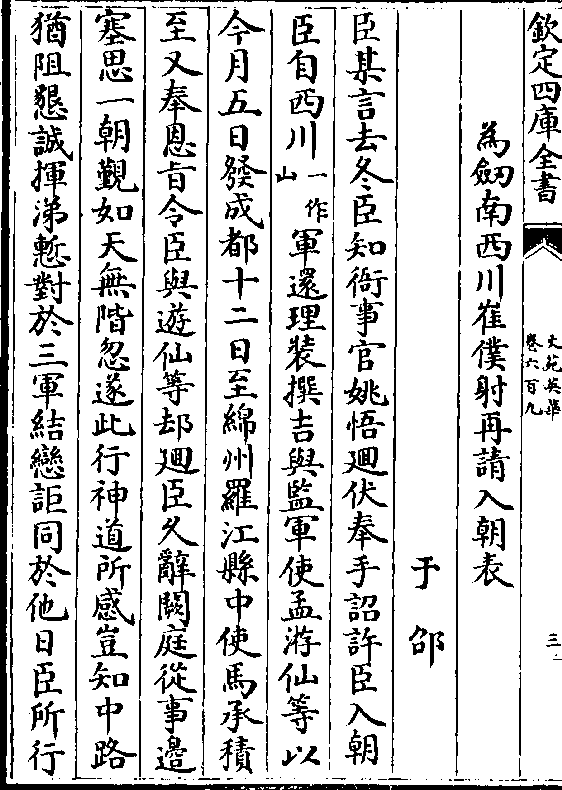 欽定四庫全書
文苑英華
卷六百九
三
為劒南西川崔僕射再請入朝表
于邵
臣某言去冬臣知衙事官姚悟廻伏奉手詔許臣入朝
臣自西川一作山軍還理裝撰吉與監軍使孟游仙等以
今月五日發成都十二日至綿州羅江縣中使馬承積
至又奉恩旨令臣與遊仙等却廻臣久辭闕庭從事邊
塞思一朝覲如天無階忽遂此行神道所感豈知中路
猶阻懇誠揮涕慙對於三軍結戀詎同於他日臣所行